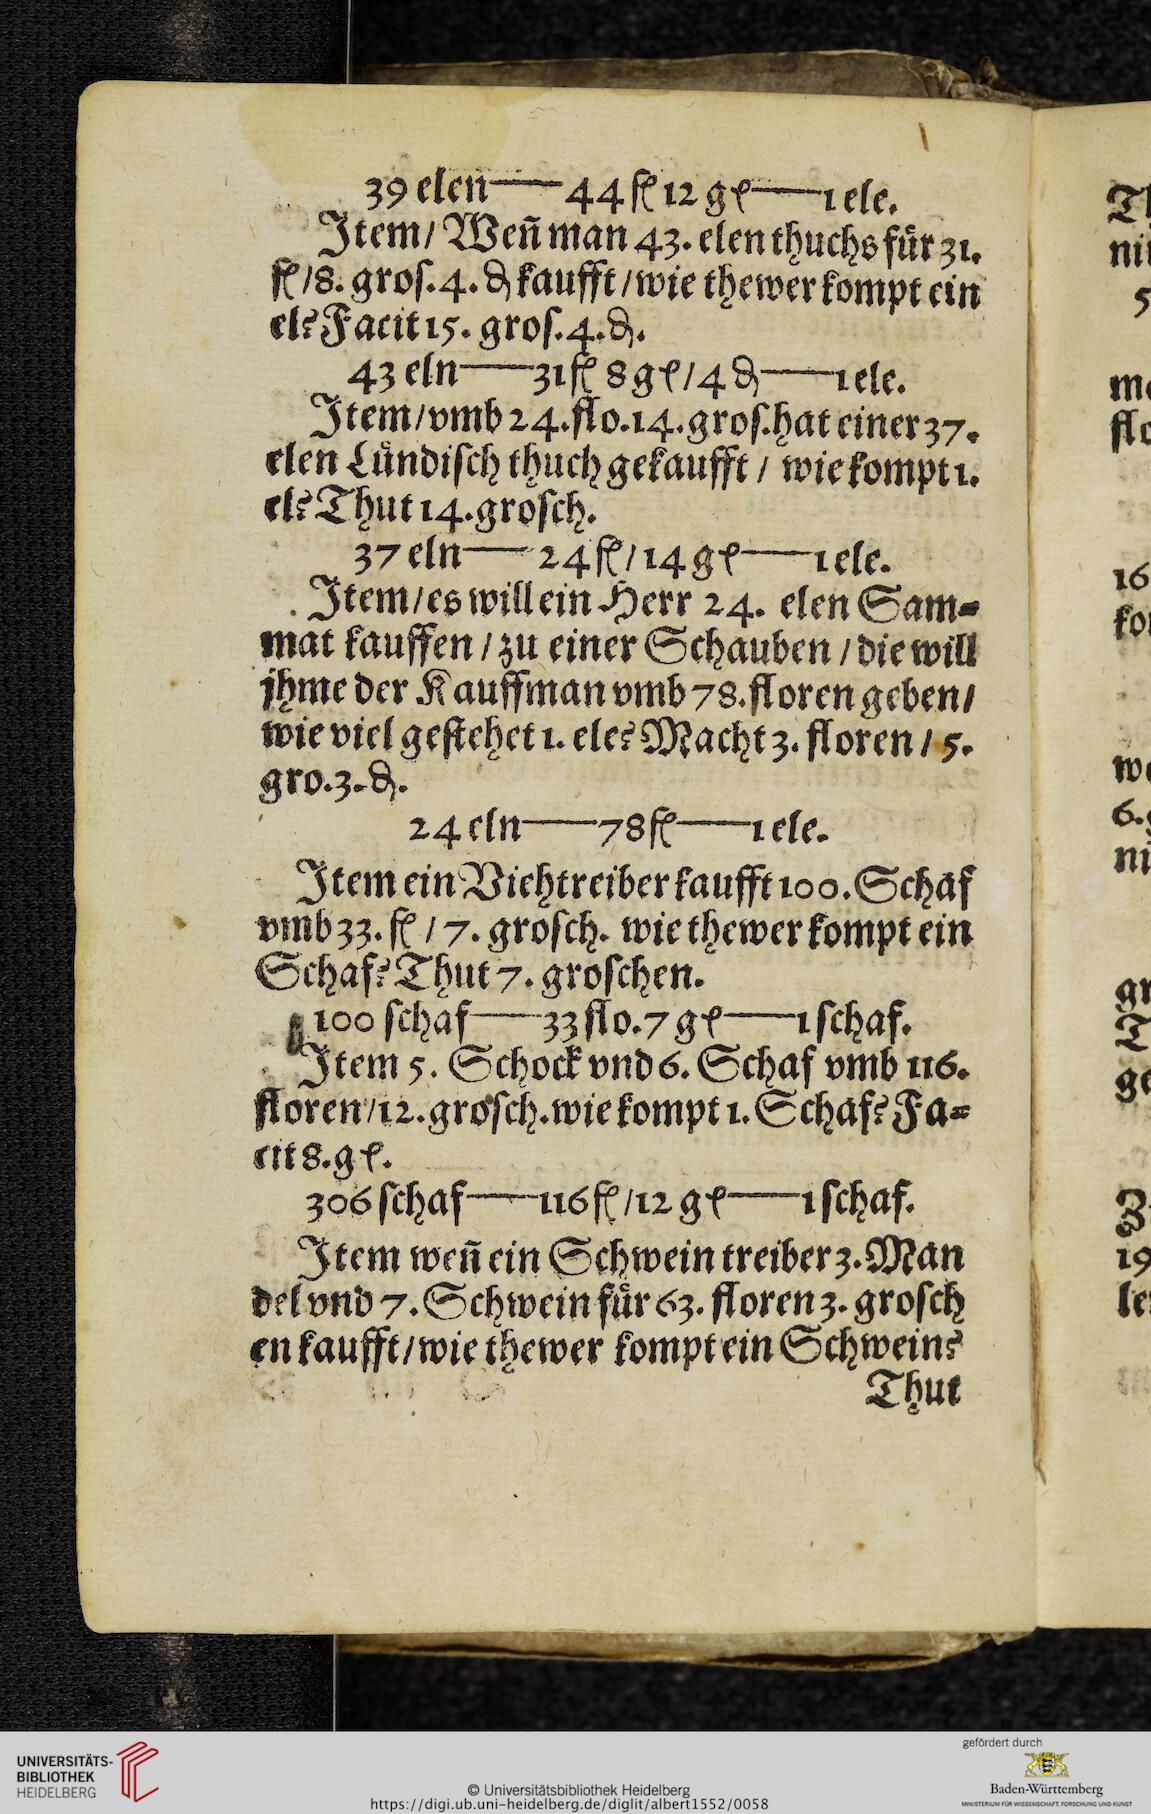 39 elen——44 fl 12 gl——1 ele.
Item/ Weñ man 43. elen thuchs für 31.
fl/8. gros. 4. ₰ kaufft/wie thewer kompt ein
el? Facit 15. gros. 4. ₰.
43 eln——31 fl 8 gl/4 ₰——1 ele.
Item/vmb 24. flo. 14. gros. hat einer 37.
elen Lündisch thuch gekaufft / wie kompt 1.
el? Thut 14. grosch.
37 eln——24 fl/14 gl——1 ele.
Item/es will ein Herr 24. elen Sam=
mat kauffen / zu einer Schauben / die will
jhme der Kauffman vmb 78. floren geben/
wie viel gestehet 1. ele? Macht 3. floren / 5.
gro. 3. ₰.
24 eln——78 fl——1 ele.
Item ein Viehtreiber kaufft 100. Schaf
vmb 33. fl / 7. grosch. wie thewer kompt ein
Schaf? Thut 7. groschen.
100 schaf——33 flo. 7 gl——1 schaf.
Item 5. Schock vnd 6. Schaf vmb 116.
floren/12. grosch. wie kompt 1. Schaf? Fa=
cit 8. gl.
306 schaf——116 fl/12 gl——1 schaf.
Item weñ ein Schwein treiber 3. Man
del vnd 7. Schwein für 63. floren 3. grosch
en kaufft/wie thewer kompt ein Schwein?
Thut
ni
5
flo
16
6.
ni
ge
19
UNIVERSITÄTS-
BIBLIOTHEK
HEIDELBERG
© Universitätsbibliothek Heidelberg
https://digi.ub.uni-heidelberg.de/diglit/albert1552/0058
gefördert durch
Baden-Württemberg
MINISTERIUM FÜR WISSENSCHAFT, FORSCHUNG UND KUNST